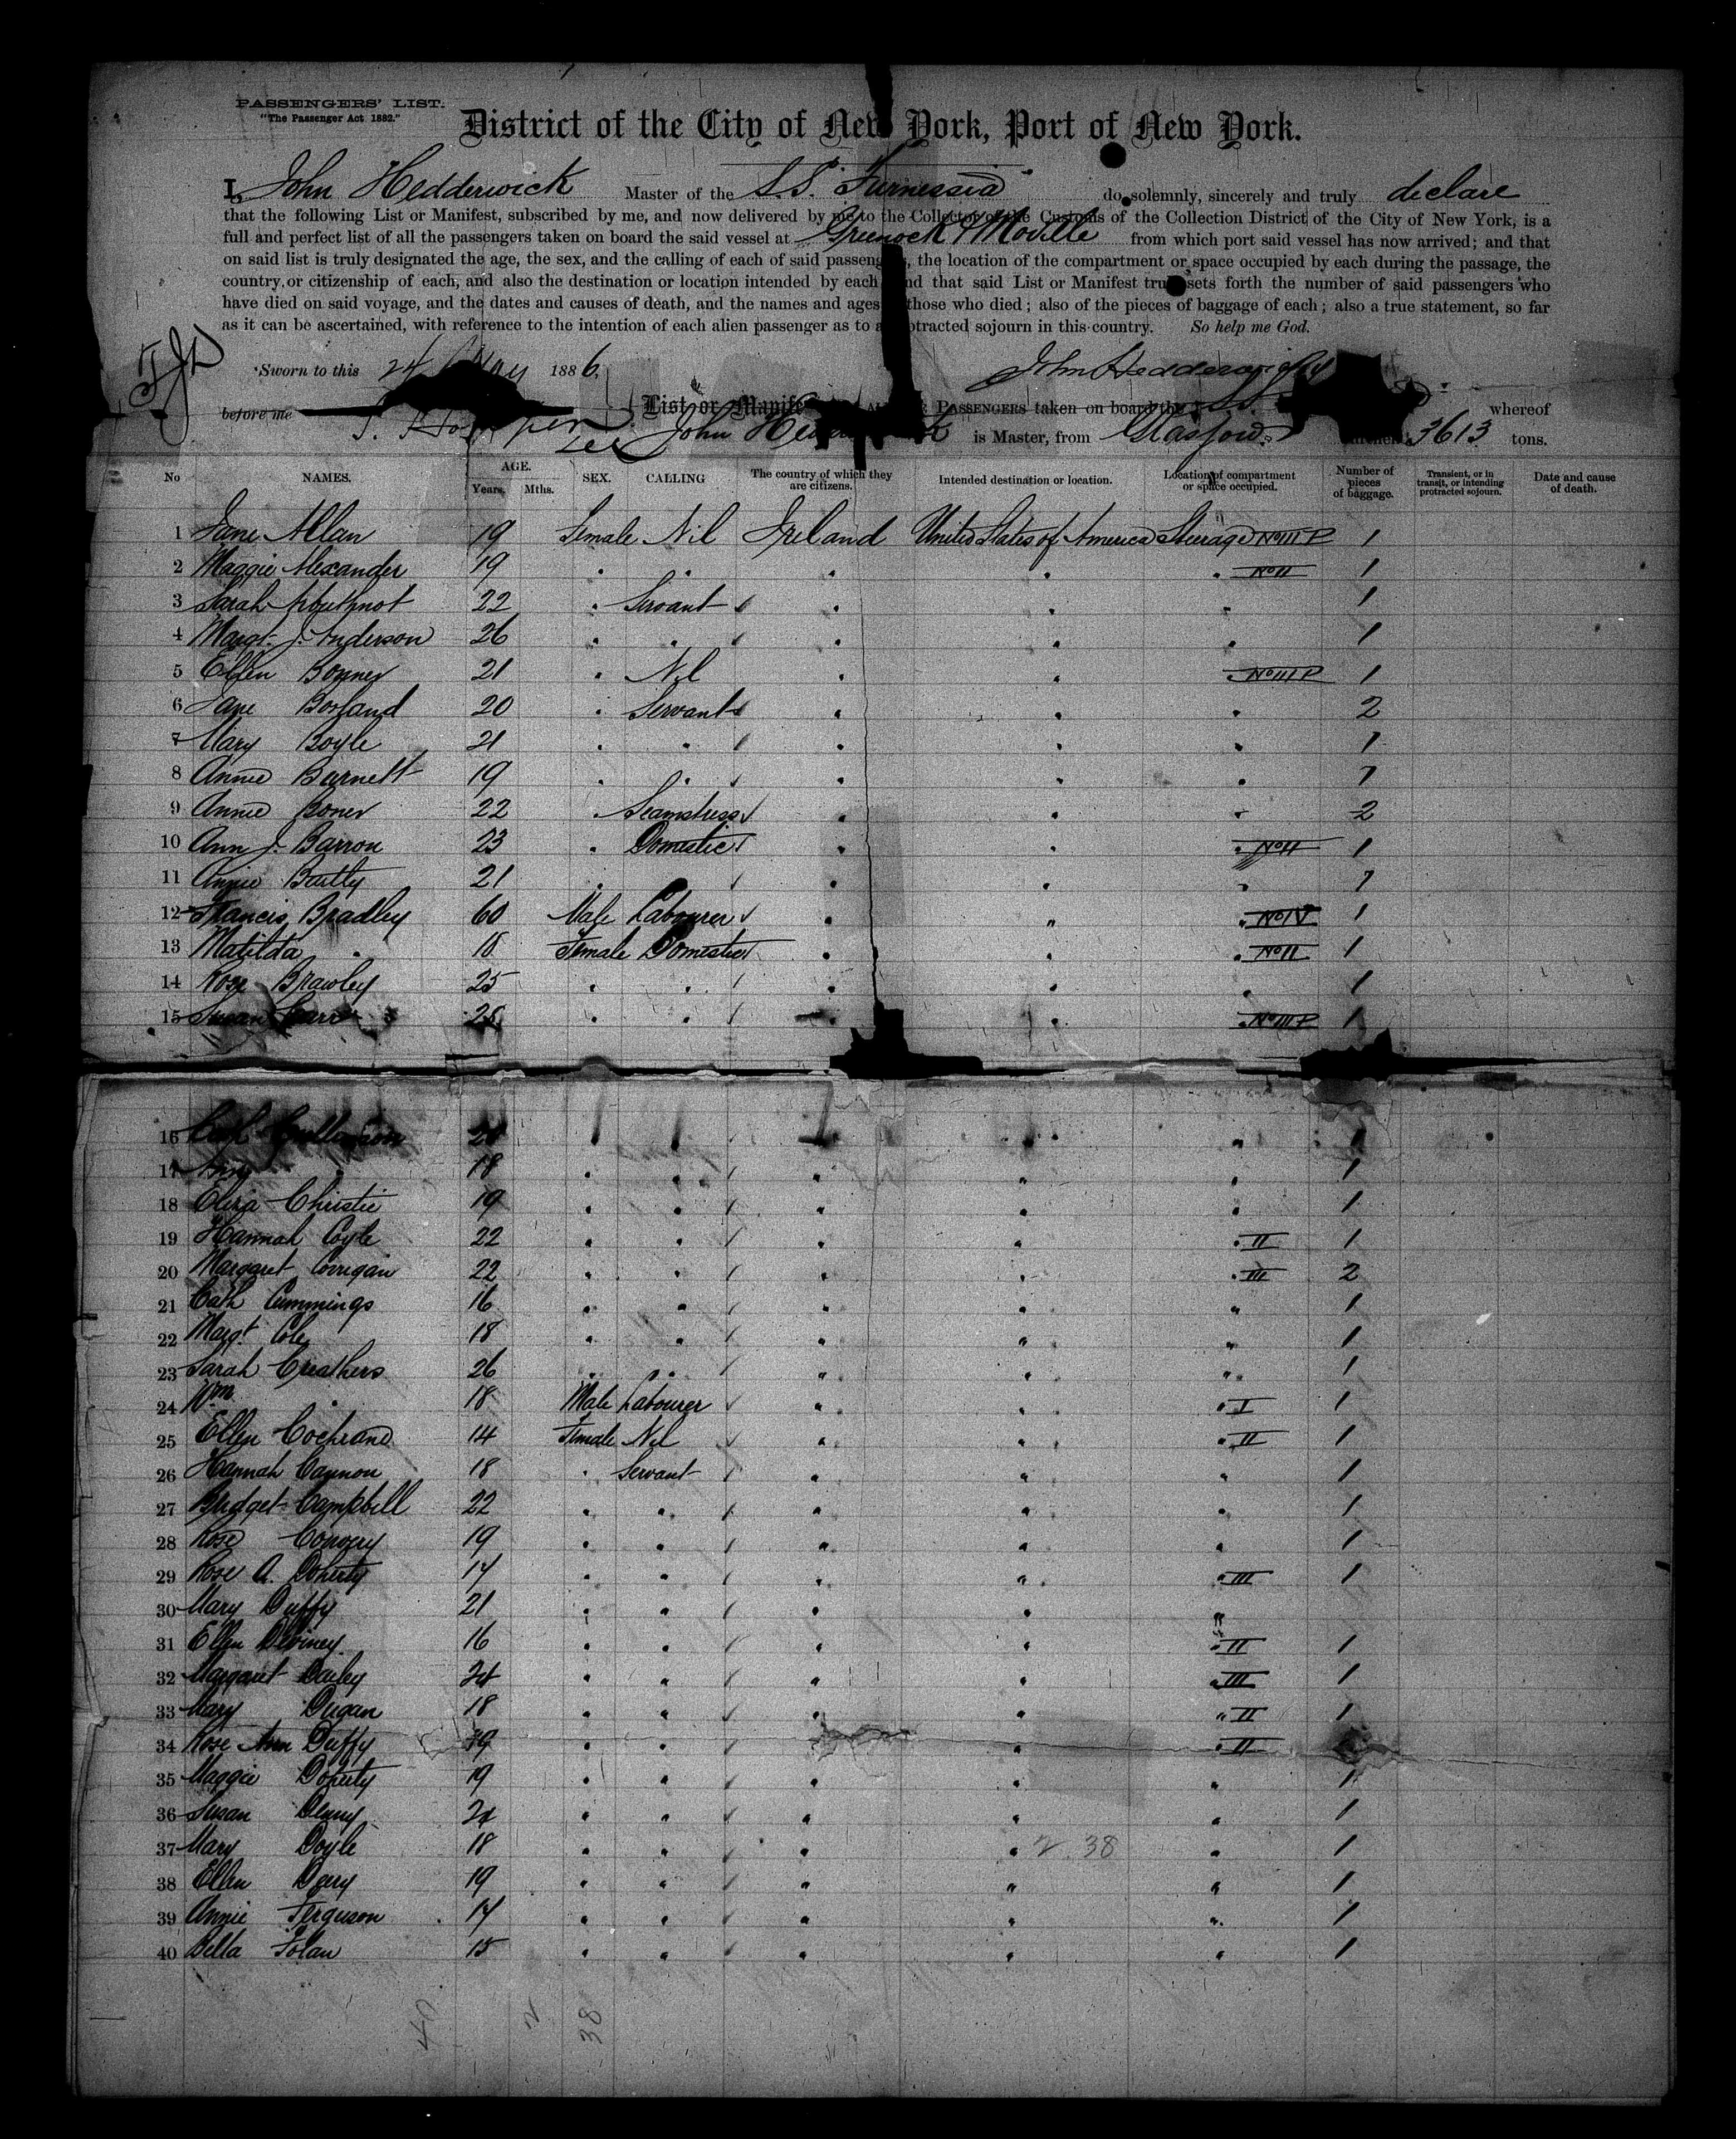 PASSENGERS' LIST.
"The Passenger Act 1882."
District of the City of New York, Port of New York.
I, John Hedderwick Master of the S.S. Furnessia do solemnly, sincerely and truly declare
that the following List or Manifest, subscribed by me, and now delivered by me to the Collector of the Customs of the Collection District of the City of New York, is a
full and perfect list of all the passengers taken on board the said vessel at Greenock & Moville from which port said vessel has now arrived; and that
on said list is truly designated the age, the sex, and the calling of each of said passengers, the location of the compartment or space occupied by each during the passage, the
country or citizenship of each, and also the destination or location intended by each and that said List or Manifest truly sets forth the number of said passengers who
have died on said voyage, and the dates and causes of death, and the names and ages those who died; also of the pieces of baggage of each; also a true statement, so far
as it can be ascertained, with reference to the intention of each alien passenger as to a protracted sojourn in this country. So help me God.
Sworn to this 24 May 1886. John Hedderwick
before me List or Manifest PASSENGERS taken on board the S.S. whereof
John Hedderwick is Master, from Glasgow 3613 tons.
No NAMES. AGE. Years. Mths. SEX. CALLING The country of which they are citizens. Intended destination or location. Location of compartment or space occupied. Number of pieces of baggage. Transient, or in transit, or intending protracted sojourn. Date and cause of death.
1 Jane Allan 19 Female Nil Ireland United States of America Steerage No III P 1
2 Maggie Alexander 19 " " " " " No II 1
3 Sarah Arbuthnot 22 " Servant " " " 1
4 Margt. J. Anderson 26 " " " " " 1
5 Ellen Bonner 21 " Nil " " " No III P 1
6 Jane Borland 20 " Servant " " " 2
7 Mary Boyle 21 " " " " " 1
8 Annie Burnett 19 " " " " " 1
9 Annie Boner 22 " Seamstress " " " 2
10 Ann J. Barron 23 " Domestic " " " No II 1
11 Annie Bartly 21 " " " " 1
12 Francis Bradley 60 Male Labourer " " " No IV 1
13 Matilda " 18 Female Domestic " " " No II 1
14 Rose Brawley 25 " " " " " 1
15 Susan Carr 25 " " " " " No III P 1
16 " " " " " 1
17 Ann " 18 " " " " " 1
18 Eliza Christie 19 " " " " " 1
19 Hannah Coyle 22 " " " " " II 1
20 Margaret Corrigan 22 " " " " " III 2
21 Cath Cummings 16 " " " " " 1
22 Margt Cole 18 " " " " " 1
23 Sarah Creathers 26 " " " " " 1
24 Wm " 18 Male Labourer " " " I 1
25 Ellen Cochrane 14 Female Nil " " " II 1
26 Hannah Cannon 18 " Servant " " " 1
27 Bridget Campbell 22 " " " " " 1
28 Rose Convery 19 " " " " " 1
29 Rose A. Doherty 17 " " " " " III 1
30 Mary Duffy 21 " " " " "
31 Ellen Deviney 16 " " " " " II 1
32 Margaret Dailey 24 " " " " " III 1
33 Mary Dugan 18 " " " " " II 1
34 Rose Ann Duffy 19 " " " " II
35 Maggie Doherty 19 " " " " " 1
36 Susan Denny 24 " " " " " 1
37 Mary Doyle 18 " " " " " 1
2 38
38 Ellen Deery 19 " " " " " 1
39 Annie Ferguson 17 " " " " " 1
40 Bella Folan 15 " " " " " 1
40 2 38